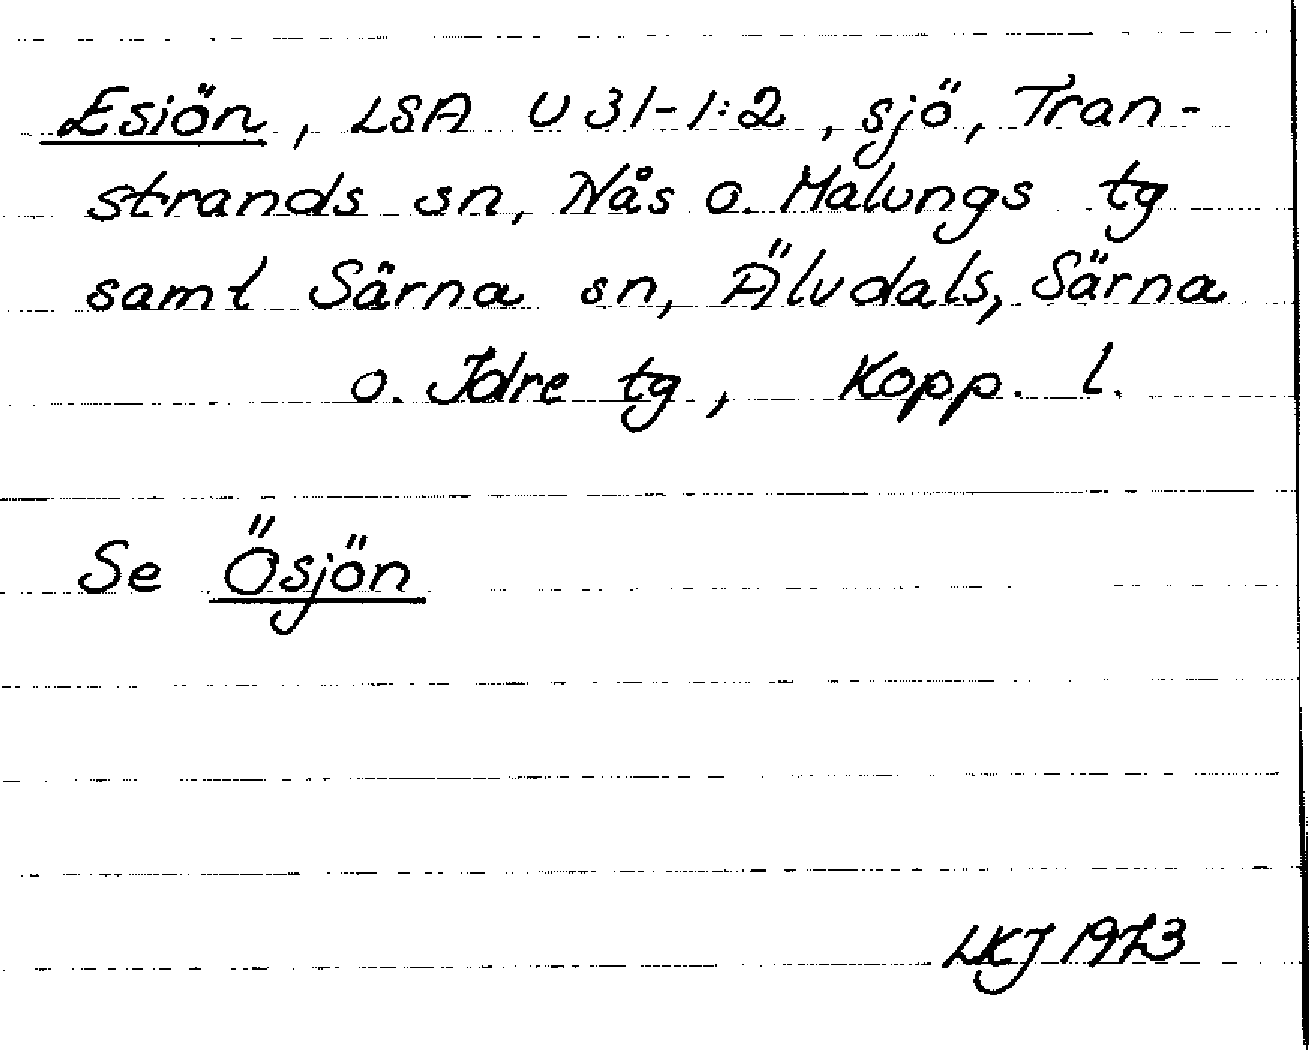 Esiön, LSA U 31-1:2, sjö, Tran-
strands sn, Nås o. Malungs tg
samt Särna sn, Älvdals, Särna
o. Idre tg, Kopp. l.
Se Ösjön
LKJ 1973